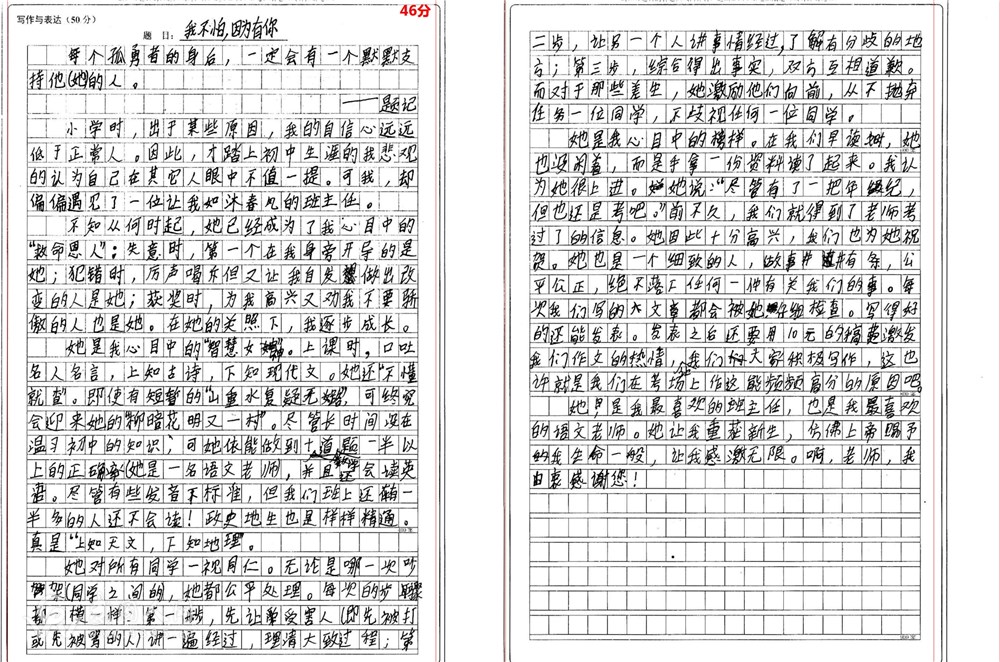 46分
写作与表达（50分）
题 目：我不怕,因为有你
每个孤勇者的身后，一定会有一个默默支
持他(她)的人。
——题记
小学时，出于某些原因，我的自信心远远
低于正常人。因此，才踏上初中生涯的我悲观
的认为自己在其它人眼中不值一提。可我，却
偏偏遇见了一位让我如沐春风的班主任。
不知从何时起，她已经成为了我心目中的
“救命恩人”：失意时，第一个在我身旁开导的是
她；犯错时，厉声喝斥但又让我自发做出改
变的人是她；获奖时，为我高兴又劝我不要骄
傲的人也是她。在她的关照下，我逐步成长。
她是我心目中的“智慧女神”。上课时，口吐
名人名言，上知古诗，下知现代文。她还“不懂
就查”。即使有短暂的“山重水复疑无路”，可终究
会迎来她的“柳暗花明又一村”。尽管长时间没在
温习初中的知识，可她依能做到十道题一半以
上的正确率(她是一名语文老师，并且还会读英
语。尽管有些发音不标准，但我们班上还有一
半多的人还不会读！政史地生也是样样精通。
真是“上知天文，下知地理”。
她对所有同学一视同仁。无论是哪一次吵
架(同学之间的，她都公平处理。每次的步骤
都一模一样：第一步，先让受害人(即先被打
或先被骂的人)讲一遍经过，理清大致过程；第
二步，让另一个人讲事情经过，了解有分歧的地
方；第三步，综合得出事实，双方互相道歉。
而对于那些差生，她激励他们向前，从不抛弃
任务一位同学，不歧视任何一位同学。
她是我心目中的榜样。在我们早读时，她
也没闲着，而是手拿一份资料读了起来。我认
为她很上进。她说：“尽管有了一把年纪，
但也还是考吧。”前不久，我们就得到了老师考
过了的信息。她因此十分高兴，我们也为她祝
贺。她也是一个细致的人，做事井井有条，公
平公正，绝不落下任何一件有关我们的事。每
次我们写的大文章都会被她仔细检查。写得好
的还能发表。发表之后还要用10元的稿费激发
我们作文的热情，我们大家积极写作，这也
许就是我们在考场上作文能频频高分的原因吧。
她是我最喜欢的班主任，也是我最喜欢
的语文老师。她让我重获新生，仿佛上帝赐予
的我生命一般，让我感激无限。啊，老师，我
由衷感谢您！